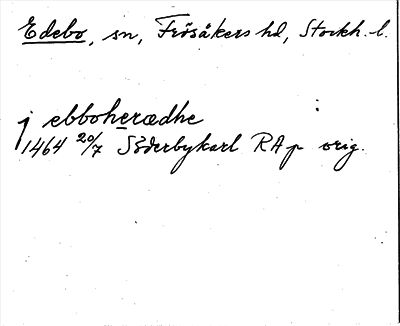 Edebo, sn, Frösåkers hd, Stockh. l.
j ebboherædhe
1464 20/7 Söderbykarl RAp orig.